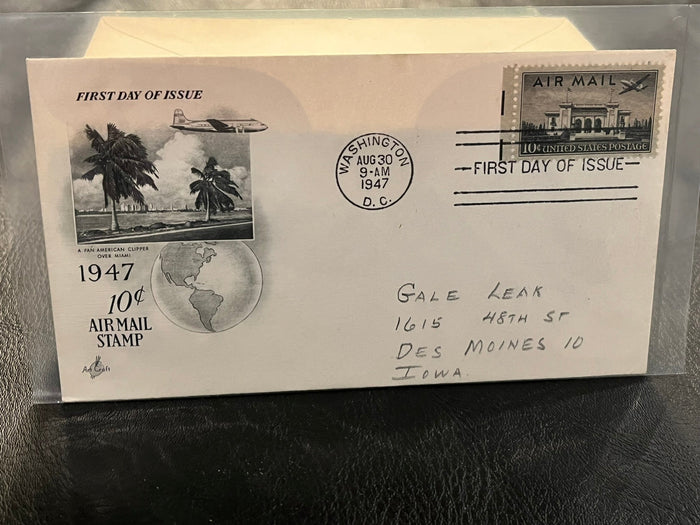 FIRST DAY OF ISSUE
A PAN AMERICAN CLIPPER
OVER MIAMI
1947
10¢
AIR MAIL
STAMP
Art Craft
WASHINGTON
AUG 30
9-AM
1947
D. C.
AIR MAIL
10¢ UNITED STATES POSTAGE
FIRST DAY OF ISSUE
GALE LEAK
1615 48TH ST
DES MOINES 10
IOWA.